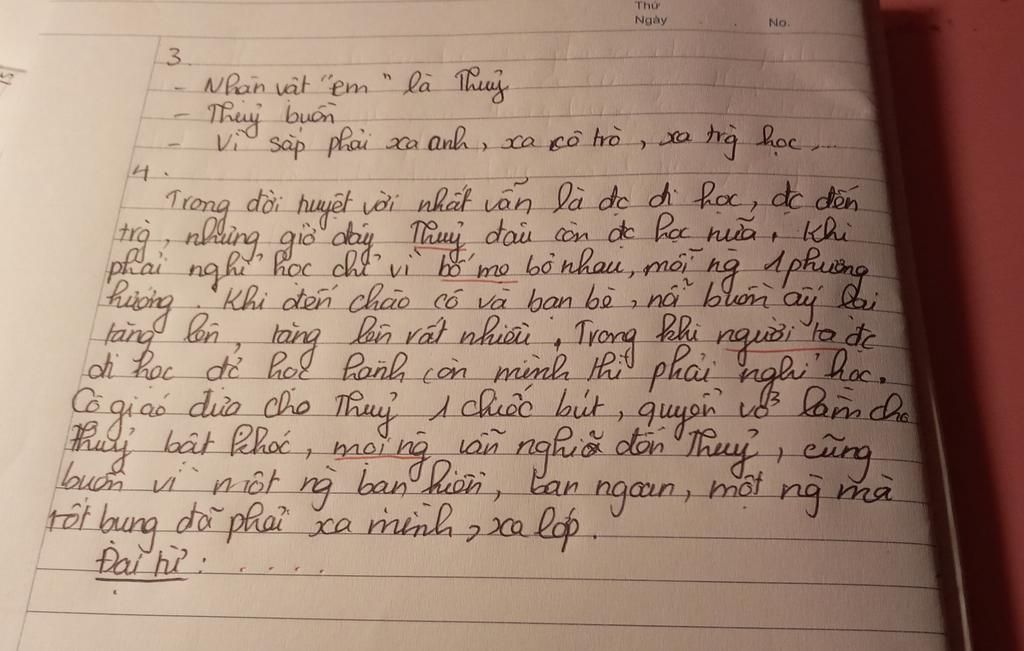 Thứ
Ngày No.
3.
- Nhân vật "em" là Thuỷ
- Thuỷ buồn
- Vì sắp phải xa anh, xa cô trò, xa trg học,...
4.
Trong đời tuyệt vời nhất vẫn là đc đi học, đc đến
trg, nhưng giờ đây Thuỷ đâu còn đc học nữa. Khi
phải nghỉ học chỉ vì bố mẹ bỏ nhau, mỗi ng 1 phương
hướng. Khi đến chào cô và bạn bè, nỗi buồn ấy lại
tăng lên, tăng lên rất nhiều. Trong khi người ta đc
đi học để học hành còn mình thì phải nghỉ học.
Cô giáo đưa cho Thuỷ 1 chiếc bút, quyển vở làm cho
Thuỷ bật khóc, mọi ng vẫn nghĩ đến Thuỷ, cũng
buồn vì một ng bạn hiền, bạn ngoan, một ng mà
tốt bụng đã phải xa mình, xa lớp.
Đại từ: . . . .